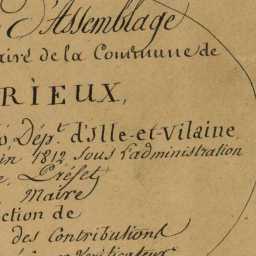 d'Assemblage
de la Commune de
RIEUX,
Dépt. d'Ille-et-Vilaine
in 1812 Sous l'administration
Préfet
Maire
ction de
des Contributions
Vérificateur